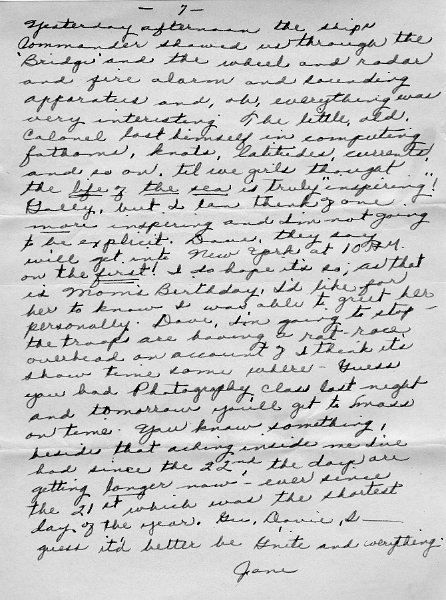 - 7 -
Yesterday afternoon the ship's
Commander showed us through the
"Bridge" and the wheel and radar
and fire alarm and sounding
apparatus and, oh, everything was
very interesting. The little, old,
Colonel lost himself in computing
fathoms, knots, latitudes, currents,
and so on, til we girls thought
the life of the sea is truly "inspiring"!
Golly, but I can think of one
more inspiring and I'm not going
to be explicit. Dave, they say
will get into New York at 10 A.M.
on the first! I so hope it's so, as that
is Mom's Birthday, I'd like for
her to know I was able to greet her
personally. Dave, I'm going to stop -
the troops are having a rat-race
overhead on account of I think it's
show time some where - Guess
you had Photography class last night
and tomorrow you'll get to mass
on time. You know something,
beside that aching inside me I've
had since the 22nd, the days are
getting longer now - ever since
the 21st which was the shortest
day of the year. Gee, Davie, I -
guess it'd better be Gnite and everything.
Jane